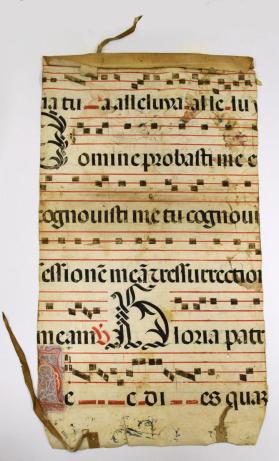 ia tu a alleluya alle lu y
Domine probasti me e
cognouisti me tu cognoui
sessionē meā & ressurrection
meam V Gloria patr
e c di es quaz